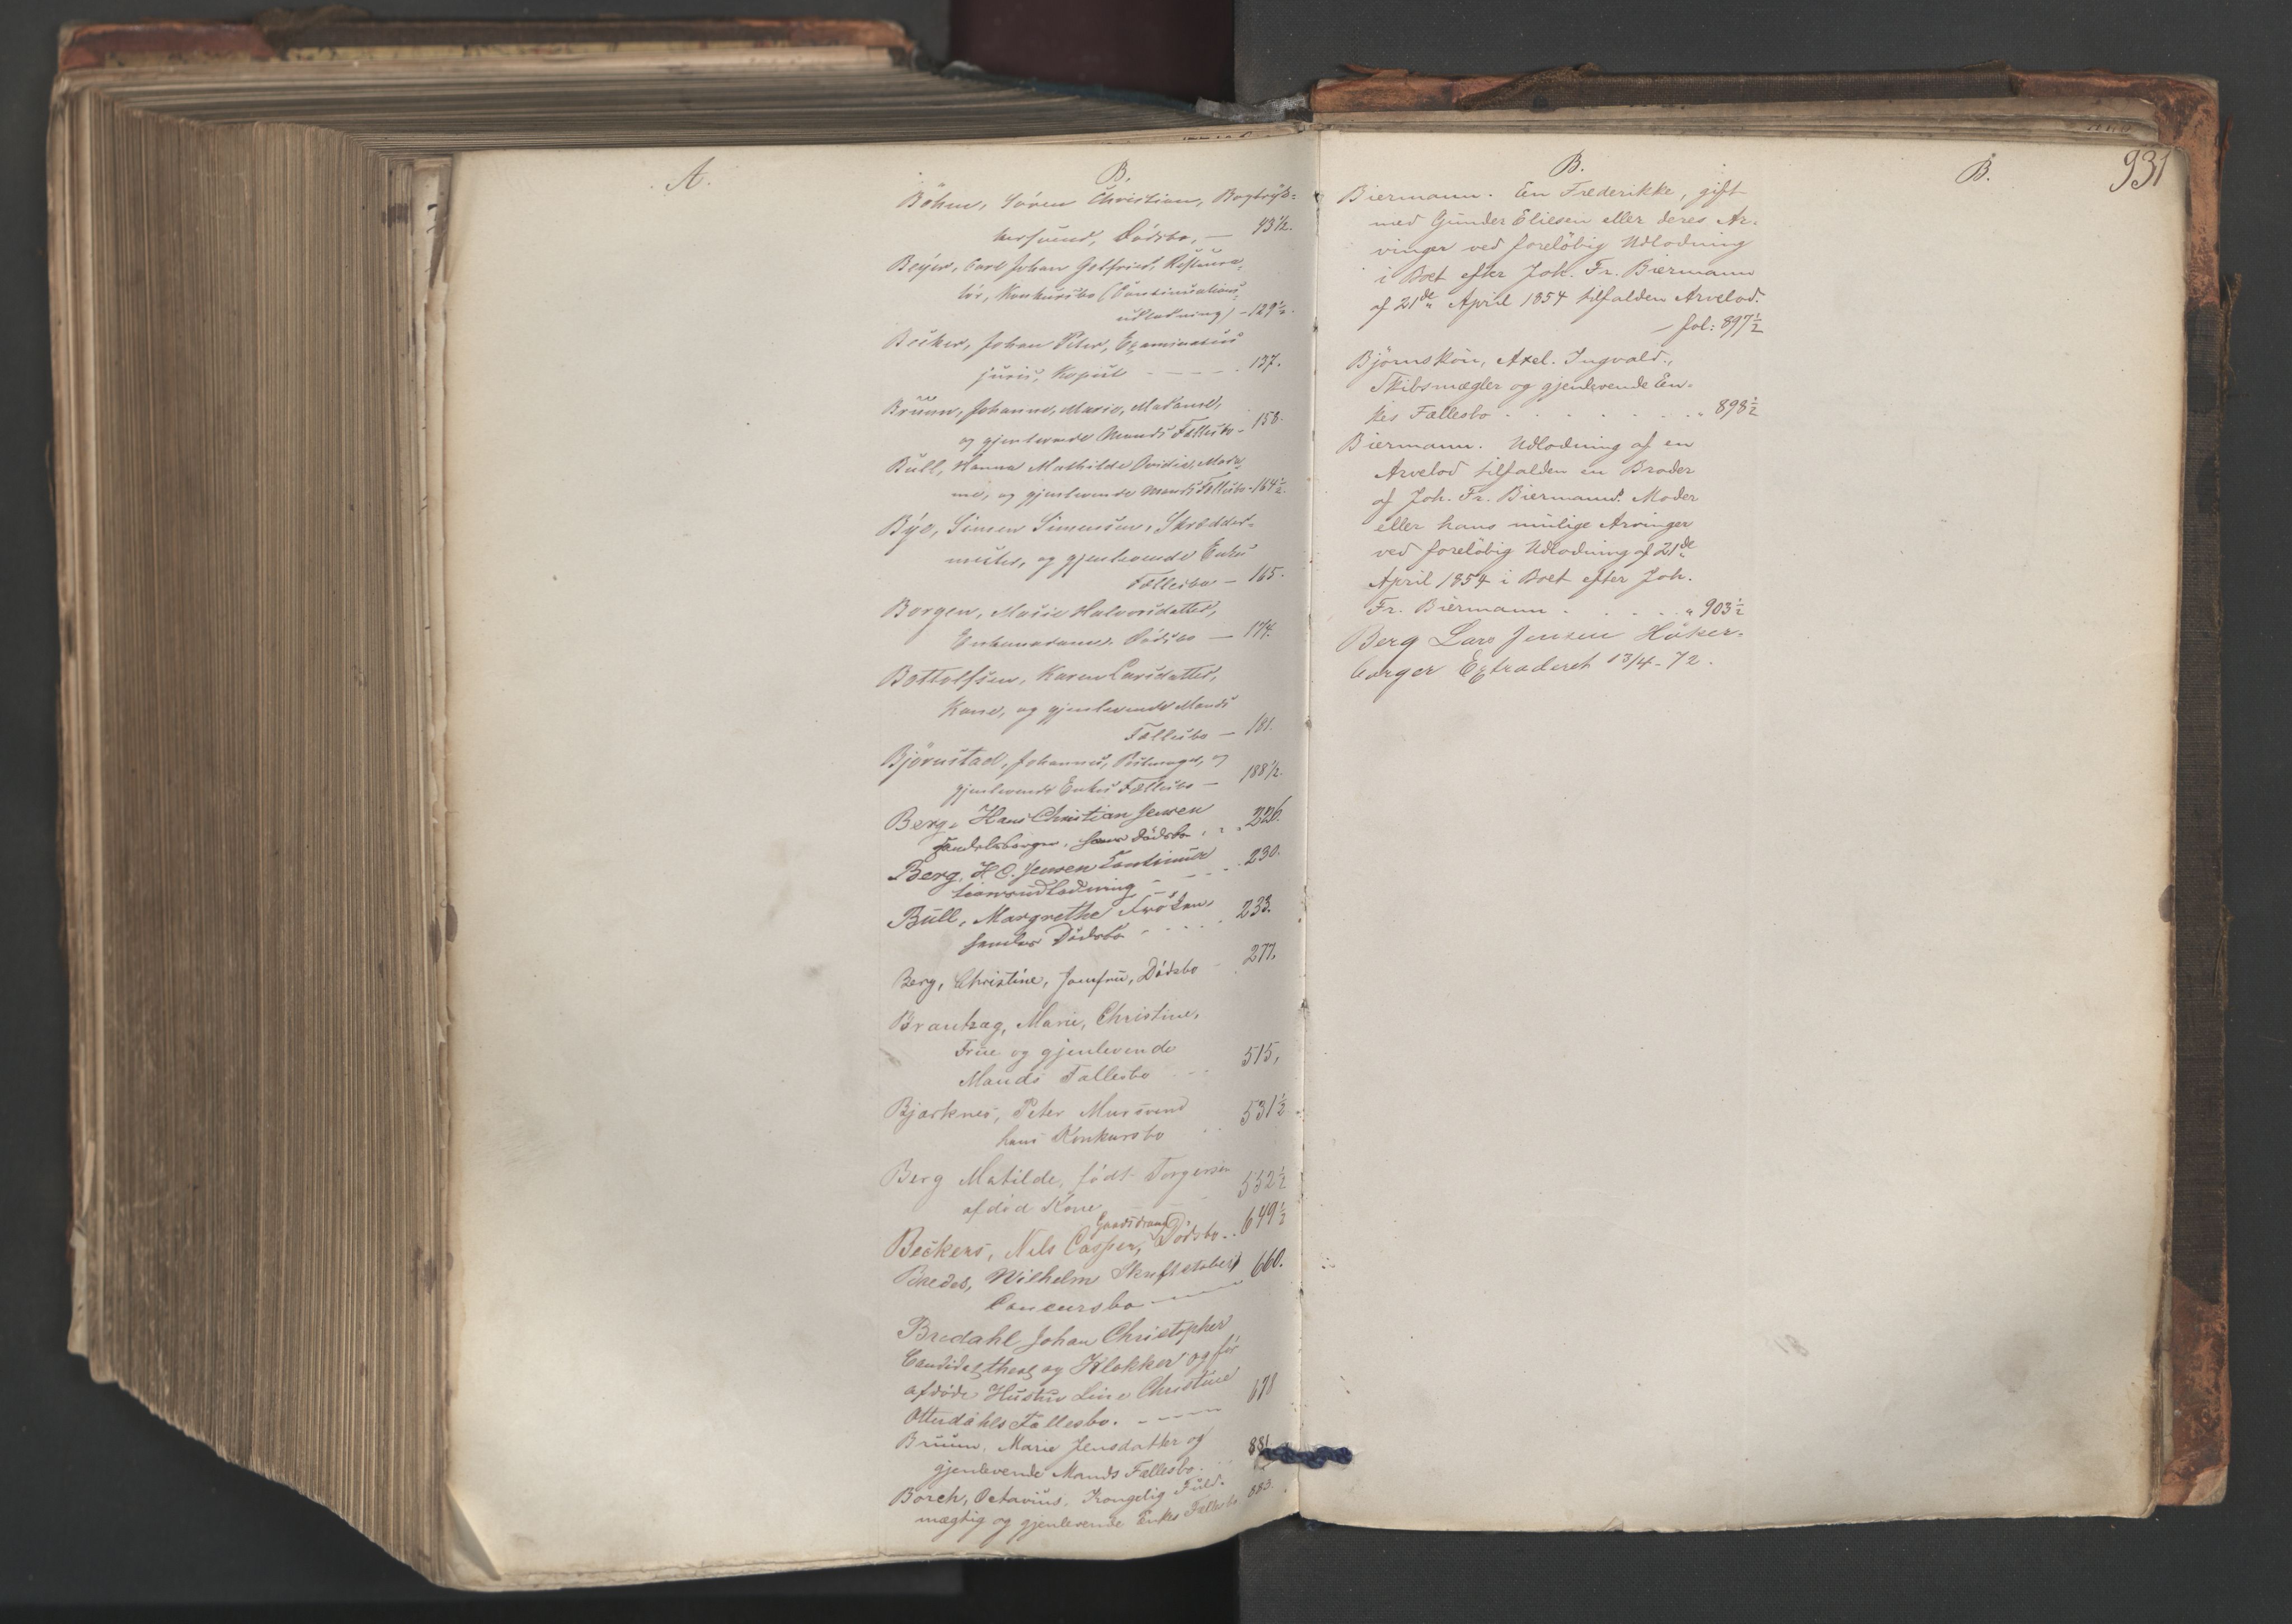 A.
B.
Böhm, Sören Christian, Bogtryk=
kersvend, Dödsbo, — 43½.
Beÿer, Carl Johan Gotfried, Restaura=
tör, Konkursbo (Continuations=
udlodning) — 129½.
Becker, Johan Peter, Examinatus
juris, Kopiist — — — 137.
Bruun, Johanne, Marie, Madame,
og gjenlevende Mands Fællesbo — 158.
Bull, Hanna Mathilde Ovidia, Mada=
me, og gjenlevende Mands Fællesbo - 164½.
Bÿe, Simen Simensen, Skrædder=
mester, og gjenlevende Enkes
Fællesbo — 165.
Borgen, Marie Halvorsdatter,
Enkemadame, Dödsbo — 174.
Bottolfsen, Karen Larsdatter,
Kone, og gjenlevende Mands
Fællesbo — 181.
Björnstad, Johannes, og
gjenlevende Enkes Fællesbo — 188½.
Berg, Hans Christian Jensen
Handelsborger, hans Dödsbo . . . 226.
Berg, H. C. Jensen Continua
tionsudlodning - - - . 230.
Bull, Margrethe Fröken,
hendes Dödsbo . . . . 233.
Berg, Christine, Jomfru, Dödsbo - 277.
Brantzæg, Marie, Christine,
Frue og gjenlevende
Mands Fællesbo - - - 515,
Bjerknes, Peter Mursvend
hans Konkursbo . . 531½
Berg Matilde, födt Torgersen
afdöd Kone - 552½
Gaardsdreng
Beckers, Nils Casper, Dödsbo - . 649½
Bredes, Wilhelm Skriftstøber
Concursbo — — 660.
Bredahl Johan Christopher
Candidat. theol og Klokker og för
afdöde Hustru Line Christine
Otterdahls Fællesbo. - — — 678
Bruun, Marie Jensdatter og
gjenlevende Mands Fællesbo. . . 881
Borch, Octavius, Kongelig Fuld=
mægtig og gjenlevende Enkes Fællesbo 883.
B.
B.
931
Biermann. En Frederikke, gift
med Gunder Eliesen eller deres Ar=
vinger ved foreløbig Udlodning
i Boet efter Joh. Fr. Biermann
af 21de April 1854 tilfalden Arvelod.
— fol: 897½
Björnskön, Axel. Ingvald.,
Skibsmægler og gjenlevende En=
kes Fællesbo . . . . . . . " 898½
Biermann. Udlodning af en
Arvelod tilfalden en Broder
af Joh. Fr. Biermanns Moder
eller hans mulige Arvinger
ved foreløbig Udlodning af 21de
April 1854 i Boet efter Joh.
Fr. Biermann . . . . . " 903½
Berg Lars Jensen Höker=
borger Extraderet 13/4 - 72.